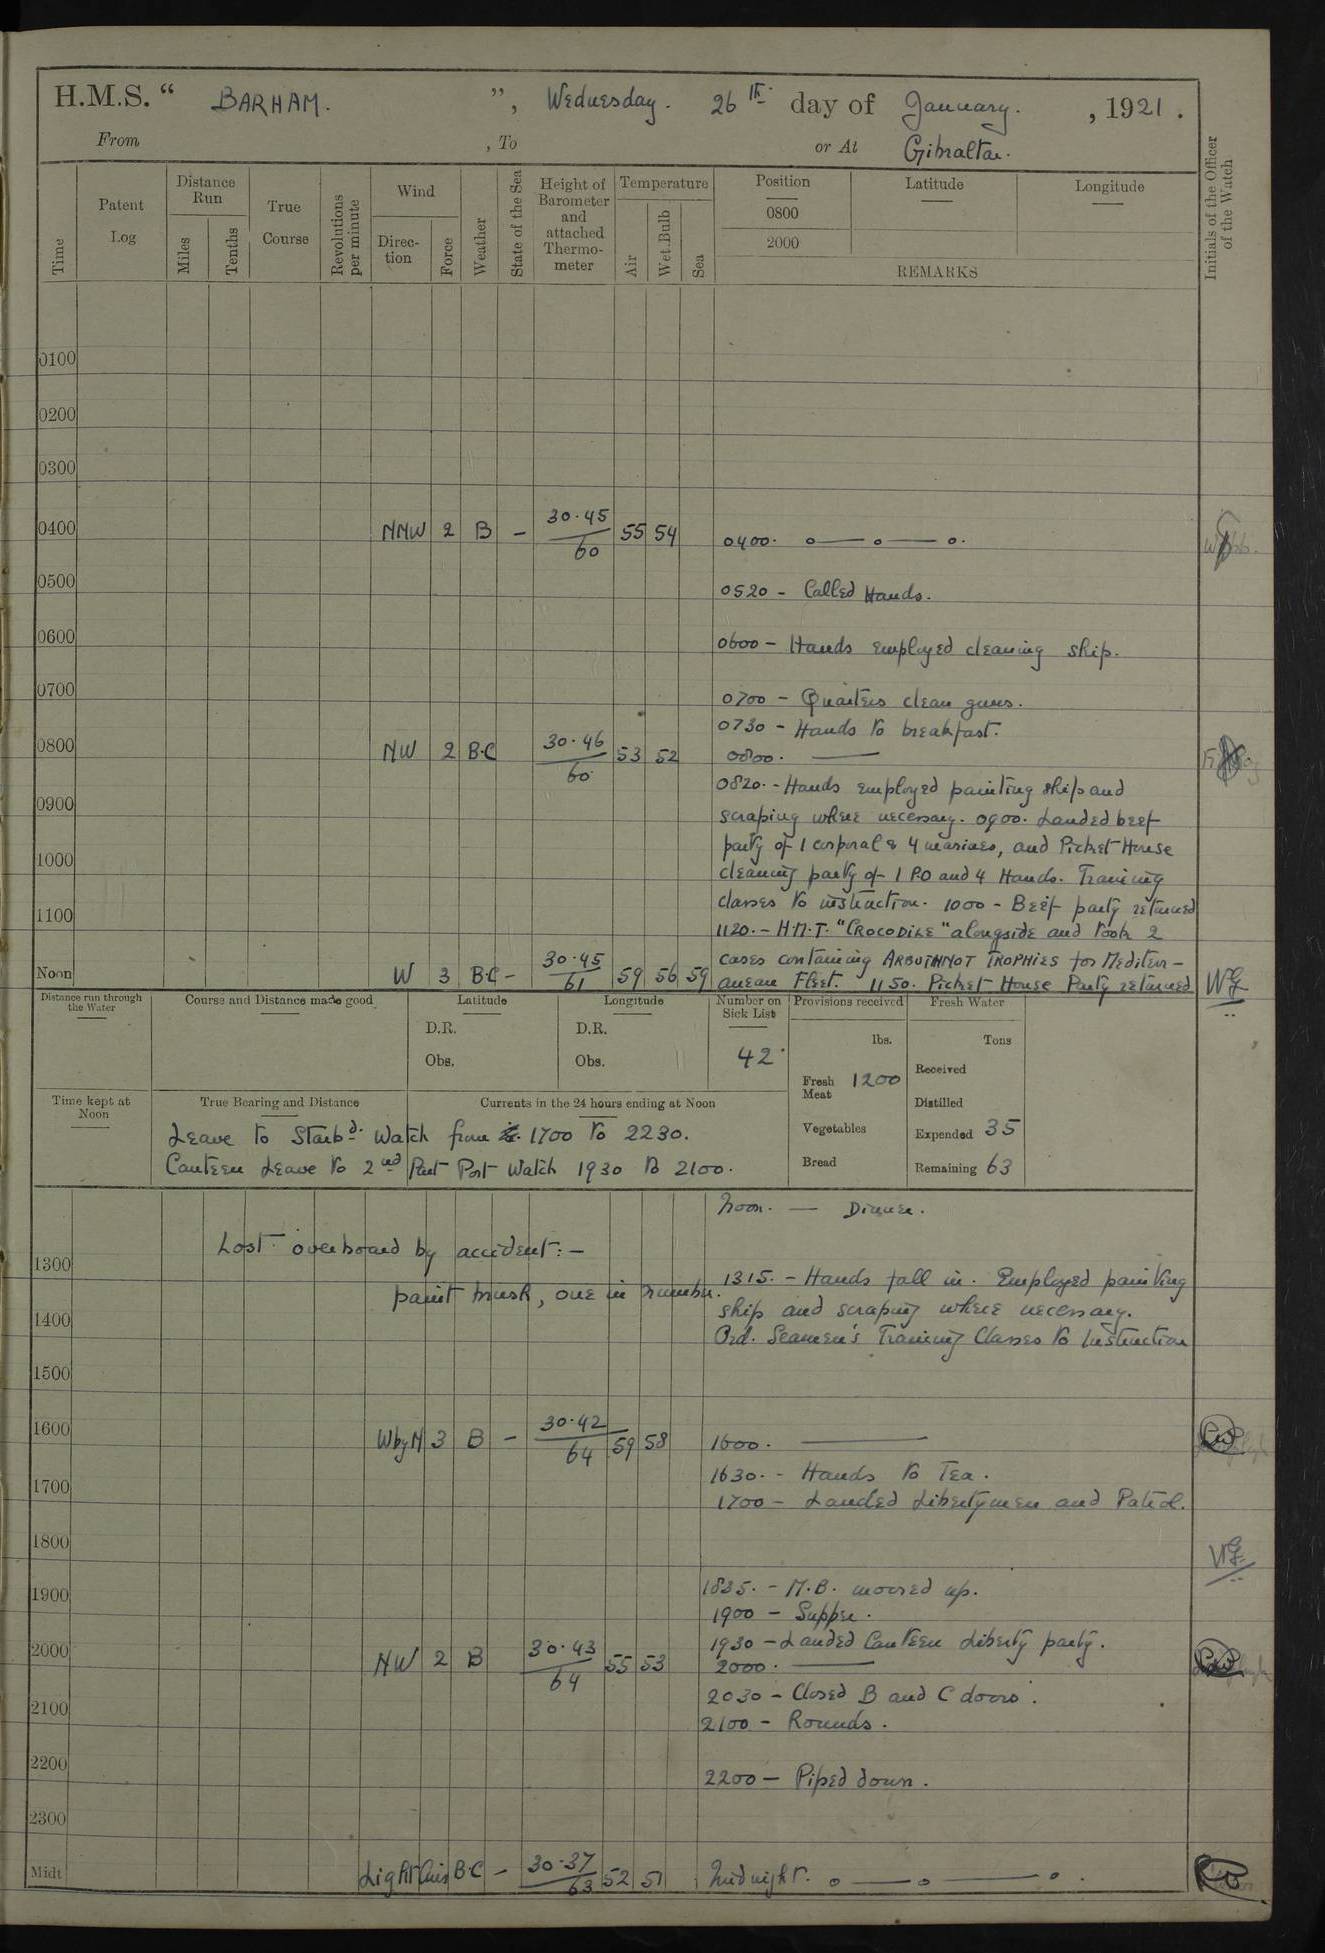 H.M.S. “ BARHAM. ”, Wednesday. 26th day of January. , 1921.
From , To or At Gibraltar.
Time
Patent Log
Distance Run
Miles
Tenths
True Course
Revolutions per minute
Wind
Direc-tion
Force
Weather
State of the Sea
Height of Barometer and attached Thermo-meter
Temperature
Air
Wet Bulb
Sea
Position
Latitude
Longitude
0800
2000
REMARKS
Initials of the Officer of the Watch
0100
0200
0300
0400 NNW 2 B - 30.45/60 55 54 0400. o — o — o.
0500 0520 - Called Hands.
0600 0600 - Hands employed cleaning ship.
0700 0700 - Quarters clean guns.
0730 - Hands to breakfast.
0800 NW 2 B.C 30.46/60 53 52 0800. —
0820. - Hands employed painting ship and
0900 scraping where necessary. 0900. Landed beef
party of 1 corporal & 4 marines, and Picket House
1000 cleaning party of 1 P.O and 4 Hands. Training
classes to instruction. 1000 - Beef party returned
1100 1120. - H.M.T. "CROCODILE" alongside and took 2
cases containing ARBUTHNOT TROPHIES for Mediterr-
Noon W 3 B.C - 30.45/61 59 56 59 anean Fleet. 1150. Picket House Party returned WG
Distance run through the Water
Course and Distance made good
Latitude
D.R.
Obs.
Longitude
D.R.
Obs.
Number on Sick List
42
Provisions received
lbs.
Fresh Meat 1200
Vegetables
Bread
Fresh Water
Tons
Received
Distilled
Expended 35
Remaining 63
Time kept at Noon
True Bearing and Distance
Currents in the 24 hours ending at Noon
Leave to Starbd. Watch from 1700 to 2230.
Canteen Leave to 2nd Part Port Watch 1930 to 2100.
Noon. — Dinner.
Lost overboard by accident: -
1300 paint brush, one in number.
1315. - Hands fall in. Employed painting
1400 ship and scraping where necessary.
Ord. Seamen's Training Classes to Instruction
1500
1600 W by N 3 B - 30.42/64 59 58 1600. —
1630. - Hands to Tea.
1700 1700 - Landed Libertymen and Patrol.
1800
1835. - M.B. moored up.
1900 1900 - Supper.
1930 - Landed Canteen Liberty party.
2000 NW 2 B 30.43/64 55 53 2000. —
2030 - Closed B and C doors.
2100 2100 - Rounds.
2200 2200 - Piped down.
2300
Midt Light Airs B.C - 30.37/63 52 51 Midnight. o — o — o.